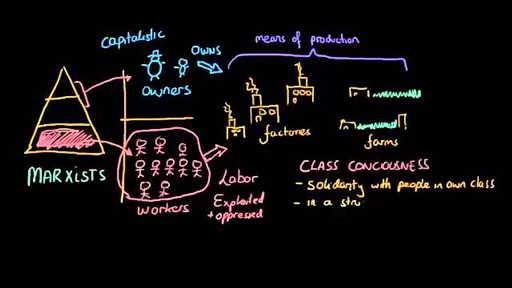 capitalistic
OWNS
means of production
owners
factories
farms
MARXISTS
workers
Labor
Exploited
+ oppressed
CLASS CONCIOUSNESS
- Solidarity with people in own class
- is a str